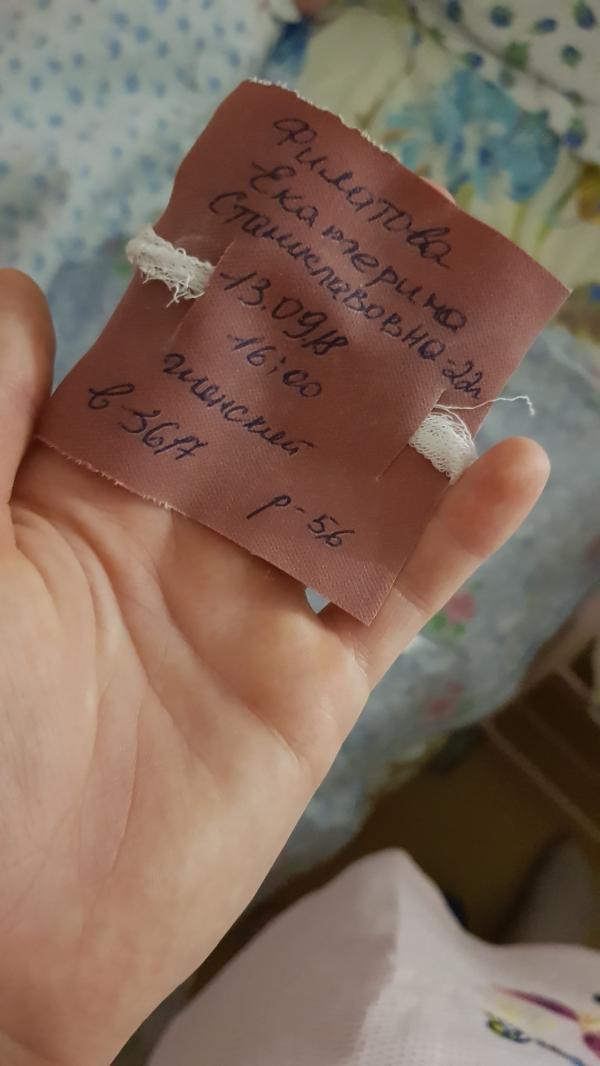 Филатова
Екатерина
Станиславовна-22л
13.09.18
16:00
женский
в-3617
р-56